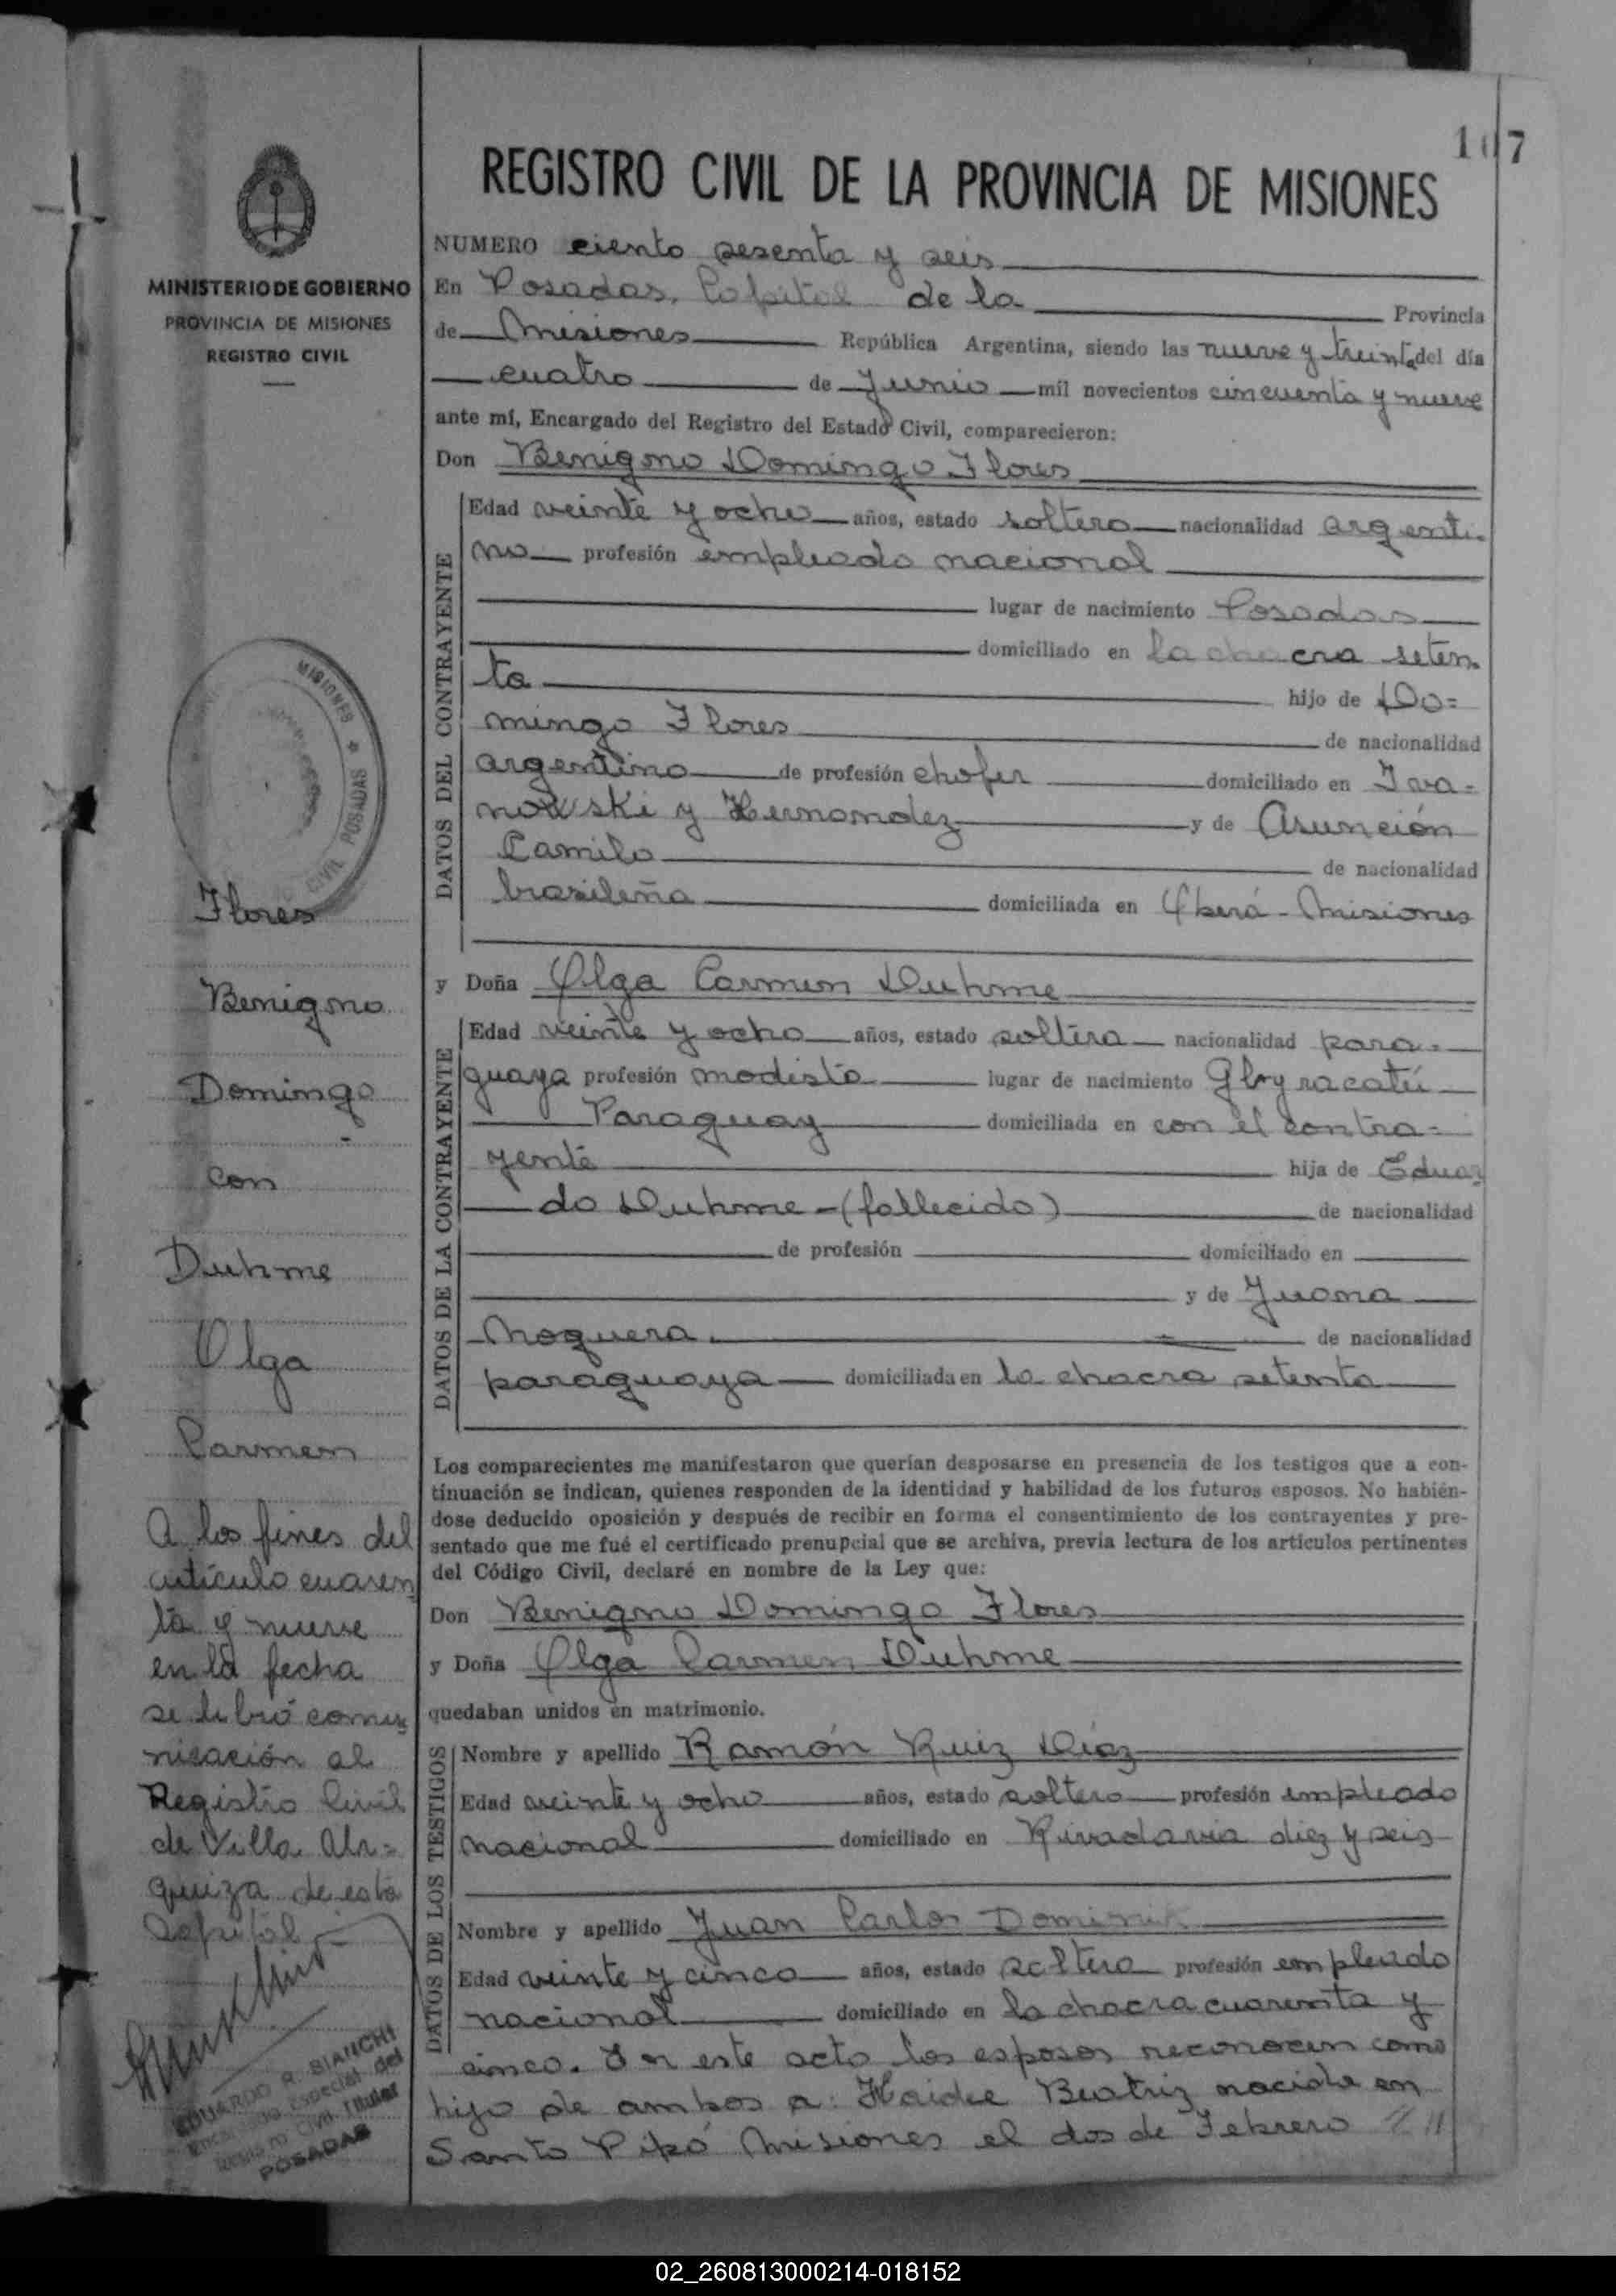 107
REGISTRO CIVIL DE LA PROVINCIA DE MISIONES
MINISTERIO DE GOBIERNO
PROVINCIA DE MISIONES
REGISTRO CIVIL
NUMERO ciento sesenta y seis
En Posadas, Capital de la Provincia
de Misiones República Argentina, siendo las nueve y treinta del día
cuatro de Junio mil novecientos cincuenta y nueve
ante mí, Encargado del Registro del Estado Civil, comparecieron:
Don Benigno Domingo Flores
DATOS DEL CONTRAYENTE
Edad veinte y ocho años, estado soltero nacionalidad argenti-
no profesión empleado nacional
lugar de nacimiento Posadas
domiciliado en la chacra seten
ta hijo de Do=
mingo Flores de nacionalidad
argentino de profesión chofer domiciliado en Iva=
nowski y Hernandez y de Asunción
Camilo de nacionalidad
brasileña domiciliada en Oberá - Misiones
y Doña Olga Carmen Duhme
DATOS DE LA CONTRAYENTE
Edad veinte y ocho años, estado soltera nacionalidad para=
guaya profesión modista lugar de nacimiento
Paraguay domiciliada en con el contra=
yente hija de Eduar
do Duhme - (fallecido) de nacionalidad
de profesión domiciliado en
y de Juana
Noguera de nacionalidad
paraguaya domiciliada en la chacra setenta
Los comparecientes me manifestaron que querían desposarse en presencia de los testigos que a con-
tinuación se indican, quienes responden de la identidad y habilidad de los futuros esposos. No habién-
dose deducido oposición y después de recibir en forma el consentimiento de los contrayentes y pre-
sentado que me fué el certificado prenupcial que se archiva, previa lectura de los artículos pertinentes
del Código Civil, declaré en nombre de la Ley que:
Don Benigno Domingo Flores
y Doña Olga Carmen Duhme
quedaban unidos en matrimonio.
DATOS DE LOS TESTIGOS
Nombre y apellido Ramón Ruiz Díaz
Edad veinte y ocho años, estado soltero profesión empleado
nacional domiciliado en Rivadavia diez y seis
Nombre y apellido Juan Carlos Dominik
Edad veinte y cinco años, estado soltero profesión empleado
nacional domiciliado en la chacra cuarenta y
cinco. En este acto los esposos reconocen como
hijo de ambos a: Haidee Beatriz nacida en
Santo Pipó Misiones el dos de Febrero
MISIONES * POSADAS
CIVIL
Flores
Benigno
Domingo
con
Duhme
Olga
Carmen
A los fines del
artículo cuaren
ta y nueve
en la fecha
se libró comu
nicación al
Registro Civil
de Villa Ur=
quiza de esta
Capital
EDUARDO R. BIANCHI
Encargado Especial del
Registro Civil Titular
POSADAS
02_260813000214-018152